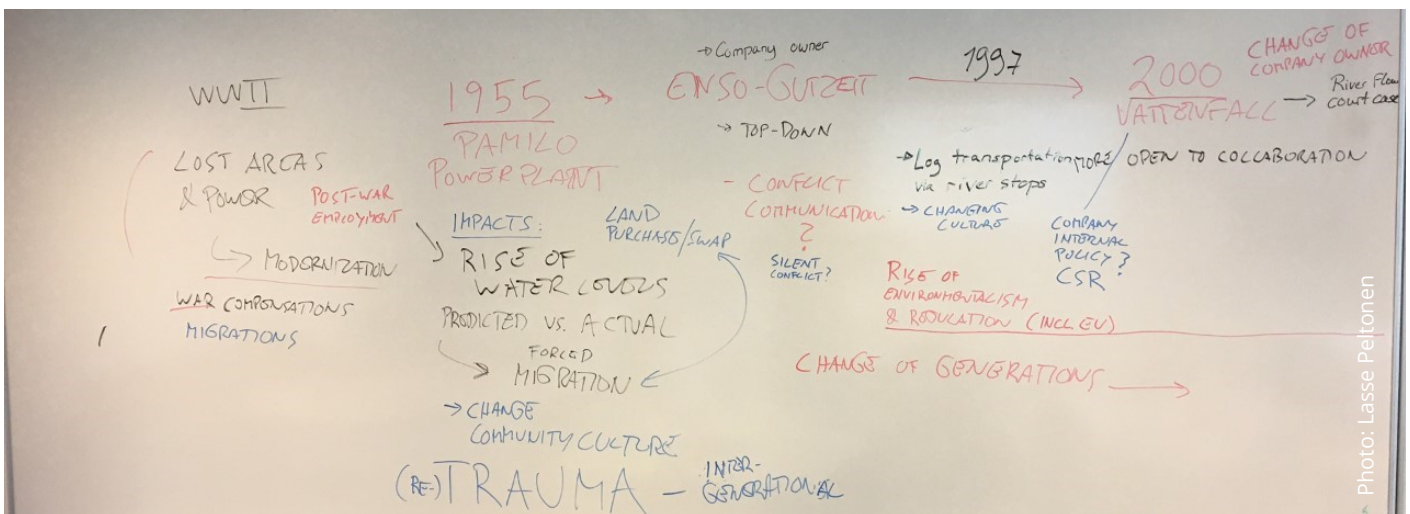 WWII
LOST AREAS
& POWER
POST-WAR
EMPLOYMENT
MODERNIZATION
WAR COMPENSATIONS
MIGRATIONS
1955
PAMILO
POWER PLANT
IMPACTS:
RISE OF
WATER LEVELS
PREDICTED VS. ACTUAL
FORCED
MIGRATION
→ CHANGE
COMMUNITY CULTURE
(RE-)TRAUMA — INTER-
GENERATIONAL
LAND
PURCHASE/SWAP
→ Company owner
→ ENSO-GUTZEIT
→ TOP-DOWN
- CONFLICT
COMMUNICATION
?
SILENT
CONFLICT?
1997
→ Log transportation
via river stops
→ CHANGING
CULTURE
RISE OF
ENVIRONMENTALISM
& REGULATION (INCL EU)
CHANGE OF GENERATIONS →
2000
VATTENFALL
CHANGE OF
COMPANY OWNER
→ River Flow
court case
MORE OPEN TO COLLABORATION
COMPANY
INTERNAL
POLICY?
CSR
Photo: Lasse Peltonen